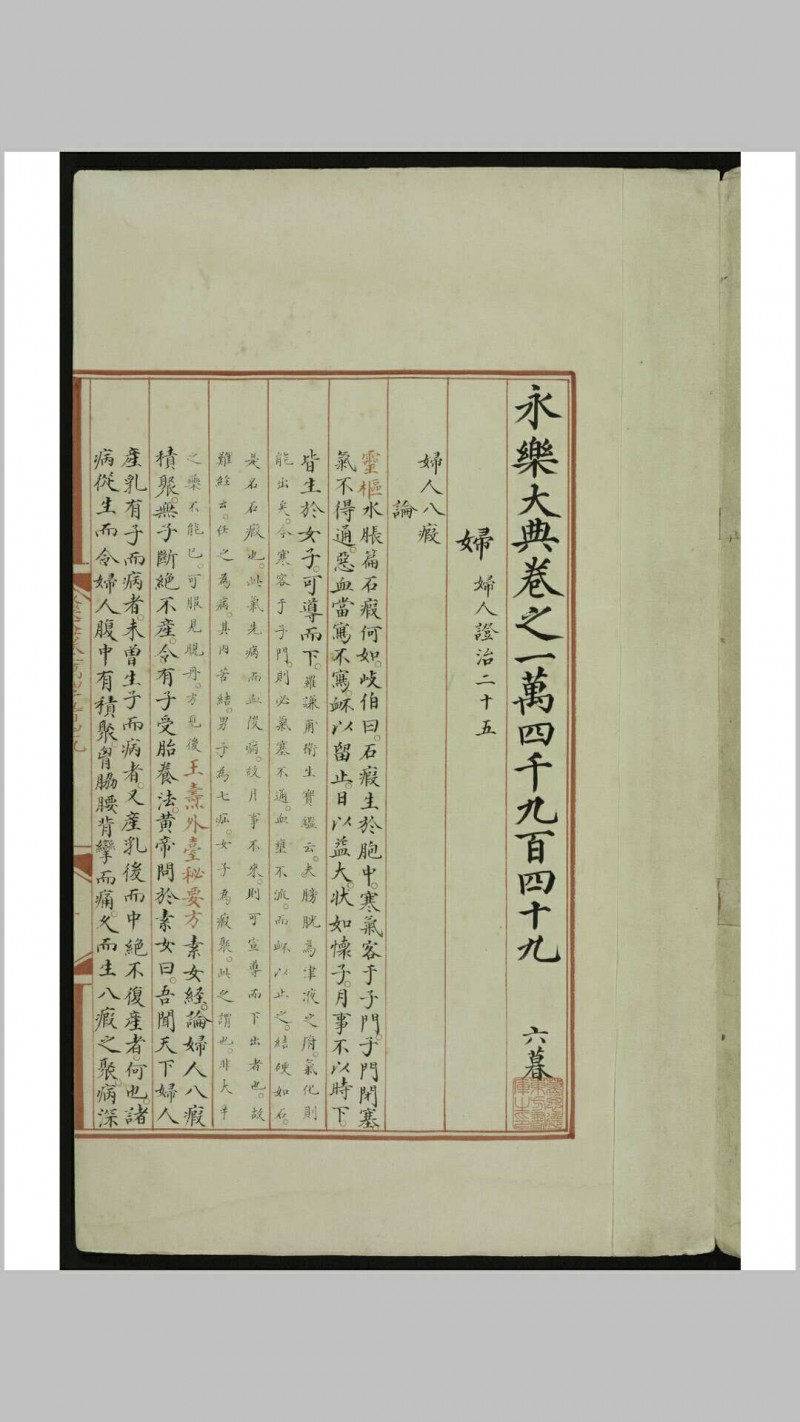 永樂大典卷之一萬四千九百四十九　六暮
婦　婦人證治二十五
婦人八瘕
論
靈樞水脹篇石瘕何如岐伯曰石瘕生於胞中寒氣客于子門子門閉塞
氣不得通惡血當寫不寫衃以留止日以益大狀如懷子月事不以時下
皆生於女子可導而下羅謙甫衛生寶鑑云夫膀胱為津液之府氣化則
能出矣今寒客于子門則必氣塞不通血壅不流而衃以止之結硬如石
是名石瘕也此氣先病而血後病故月事不來則可宣導而下出者也故
難經云任之為病其內苦結男子為七疝女子為瘕聚此之謂也非大辛
之藥不能已可服見晛丹方見後王燾外臺秘要方素女經論婦人八瘕
積聚無子斷絕不產令有子受胎養法黃帝問於素女曰吾聞天下婦人
產乳有子而病者未曾生子而病者又產乳後而中絕不復產者何也諸
病從生而令婦人腹中有積聚胷脇腰背攣而痛久而生八瘕之聚病深